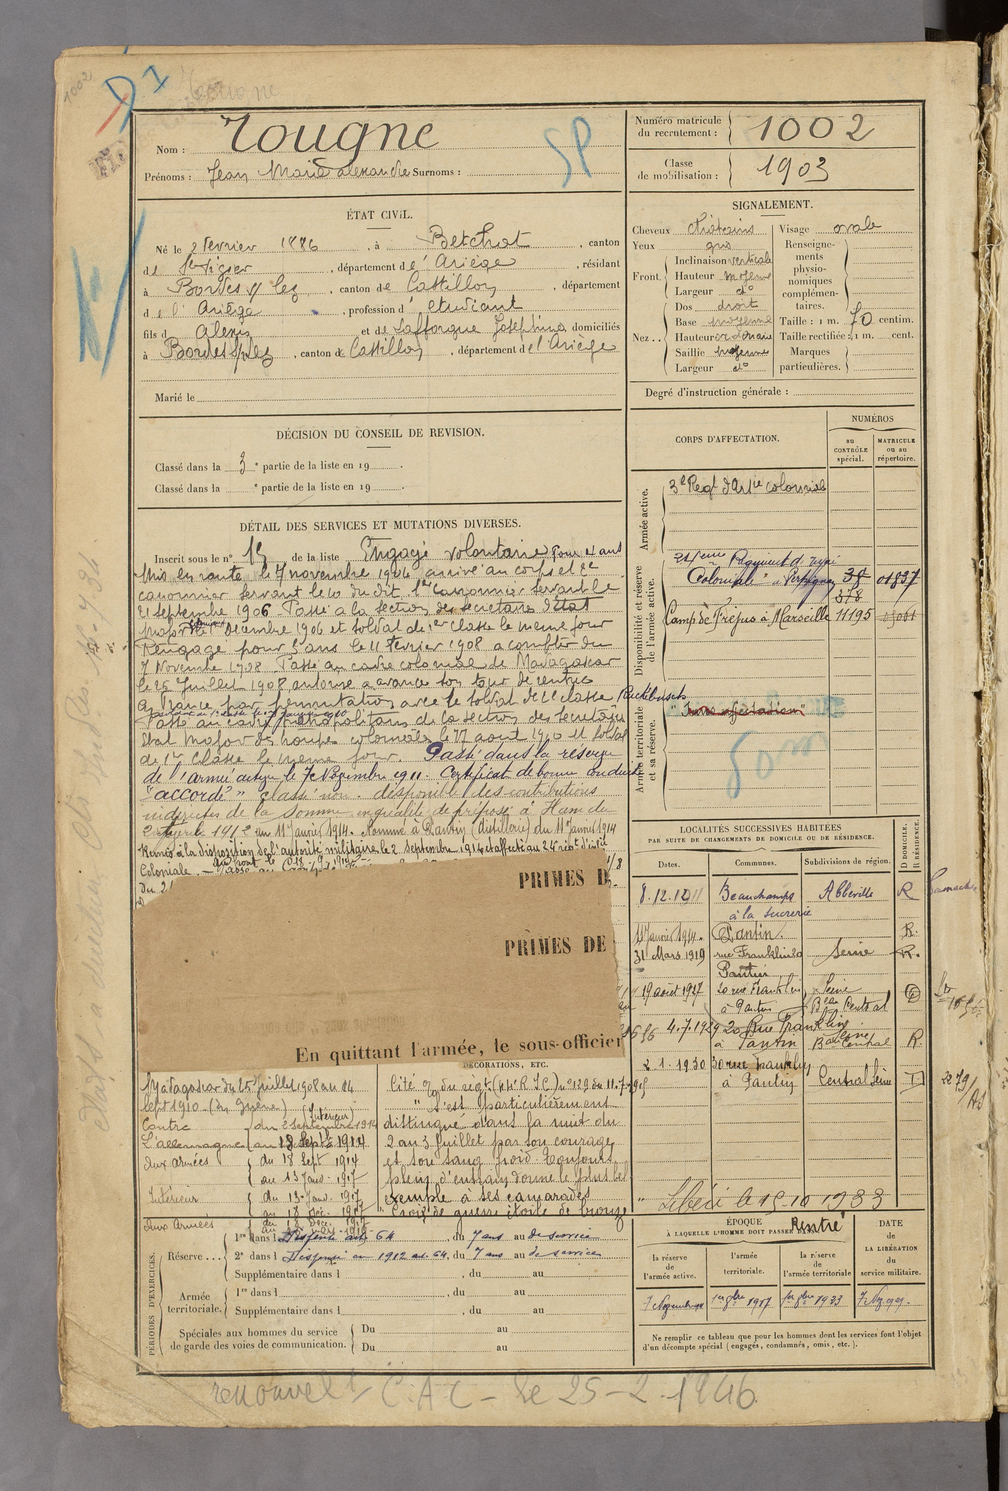 1002
Nom : Tougne
Prénoms : Jean Marie Alexandre Surnoms :
SP
Numéro matricule du recrutement : 1002
Classe de mobilisation : 1903
ÉTAT CIVIL.
Né le 2 Février 1886, à Betchat, canton
de Ste Ligier, département de l'Ariège, résidant
à Bordes s/ Lez, canton de Castillon, département
de l'Ariège, profession d'étudiant
fils d' Alexis et de Lafforgue Joséphine, domiciliés
à Bordes s/ Lez, canton de Castillon, département de l'Ariège
Marié le
SIGNALEMENT.
Cheveux chatains
Yeux gris
Front. Inclinaison verticale
Hauteur moyenne
Largeur do
Nez.. Dos droit
Base moyenne
Hauteur ordinaire
Saillie moyenne
Largeur do
Visage ovale
Renseignements physionomiques complémentaires.
Taille : 1 m. 70 centim.
Taille rectifiée : 1 m. cent.
Marques particulières.
Degré d'instruction générale :
DÉCISION DU CONSEIL DE REVISION.
Classé dans la 3e partie de la liste en 19 .
Classé dans la e partie de la liste en 19 .
DÉTAIL DES SERVICES ET MUTATIONS DIVERSES.
Inscrit sous le n° 15 de la liste Engagé volontaire pour 4 ans
Mis en route le 7 novembre 1904 arrivé au corps et 2e
canonnier servant le 10 du dit. 1er canonnier servant le
21 septembre 1906 Passé à la section des secrétaires d'Etat
major le décembre 1906 et soldat de 1er classe le meme jour
Rengagé pour 3 ans le 11 Février 1908 à compter du
7 Novembre 1908. Passé au cadre colonial de Madagascar
le 25 Juillet 1908, autorisé à avancer son tour de rentrée
en France par permutation avec le soldat de 2e classe Ruckebusch
Passé au cadre métropolitain de la section des secrétaires
Etat Major des troupes coloniales le 17 aout 1910 et soldat
de 1re classe le meme jour. Passé dans la réserve
de l'armée active le 7 Novembre 1911. Certificat de bonne conduite
"accordé" classé non disponible des contributions
indirectes de la Somme en qualité de préposé à Ham du
1912 au 11 Janvier 1914. Nommé à Pantin (distillerie) du 11 Janvier 1914
Remis à la disposition de l'autorité militaire le 2 septembre 1914 et affecté au 24e rég. d'Infie
Coloniale.
PRIMES D
PRIMES DE
En quittant l'armée, le sous-officier
CORPS D'AFFECTATION.
NUMÉROS
au CONTRÔLE spécial.
MATRICULE ou au répertoire.
Armée active.
3e Regt d'Artie coloniale
Disponibilité et réserve de l'armée active.
24ème Régiment d'Infie
Coloniale à Perpignan 38 01837
378
Camp de Fréjus à Marseille 11195
Armée territoriale et sa réserve.
"Sans affectation"
Som
LOCALITÉS SUCCESSIVES HABITÉES
PAR SUITE DE CHANGEMENTS DE DOMICILE OU DE RÉSIDENCE.
Dates. Communes. Subdivisions de région. D DOMICILE. R RÉSIDENCE.
8.12.1911 Beauchamps à la sucrerie Abbeville R
11 Janvier 1914. Pantin. R.
31 Mars 1919 rue Franklin 20 Pantin Seine R.
19 août 1927 20 rue Franklin à Pantin Seine Beau Central
4.7.1929 20 Rue Franklin à Pantin Seine Bau Central R.
2.1.1930 30 rue Franklin à Pantin Central Seine
Libéré le 15.10.1933
DÉCORATIONS, ETC.
Madagascar du 25 Juillet 1908 au 14
Sept 1910 (En Guerre)
Contre L'allemagne (Intérieur) du 2 septembre 1914
au 18 Sept 1914
Aux armées du 18 Sept 1914
au 13 Janv. 1917
Intérieur du 13 Janv. 1917
au 18 Déc. 1917
Aux Armées du 18 Déc. 1917
Cité O/ du régt (24e R.I.C) n° 129 du 11.7.1915
"S'est particulièrement
distingué dans la nuit du
2 au 3 Juillet par son courage
et son sang froid toujours
plein d'entrain donne le plus bel
exemple à ses camarades"
Croix de guerre étoile de bronze
PÉRIODES D'EXERCICES.
Réserve... 1re dans l Dispensé art 64, du 7 ans au de service
2e dans l Dispensé en 1912 art. 64, du 7 ans au de service
Supplémentaire dans l , du au
Armée territoriale. 1re dans l , du au
Supplémentaire dans l , du au
Spéciales aux hommes du service de garde des voies de communication. Du au
Du au
ÉPOQUE À LAQUELLE L'HOMME DOIT PASSER DANS
Rentré
la réserve de l'armée active. l'armée territoriale. la réserve de l'armée territoriale
DATE DE LA LIBÉRATION du service militaire.
7 Novembre 1er 8bre 1917 1er 8bre 1923
Ne remplir ce tableau que pour les hommes dont les services font l'objet
d'un décompte spécial (engagés, condamnés, omis, etc.).
renouvelt C.A.C - le 25-2-1946